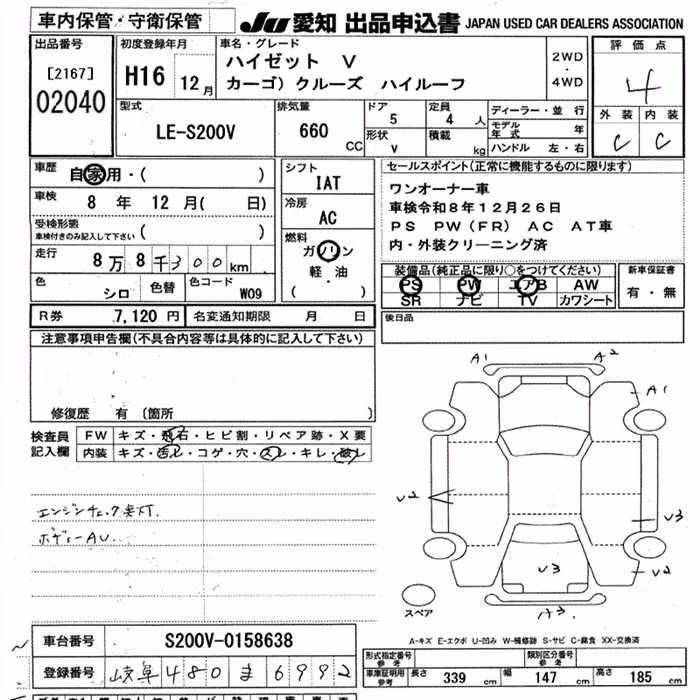 車内保管・守衛保管 JU 愛知 出品申込書 JAPAN USED CAR DEALERS ASSOCIATION
出品番号 [2167] 02040
初度登録年月 H16 12月
車名・グレード ハイゼット V
カーゴ) クルーズ ハイルーフ
2WD・4WD
評価点 4
外装 C 内装 C
型式 LE-S200V
排気量 660 CC
ドア 5 定員 4 人
形状 V 積載 kg
ディーラー・並行
モデル年式 年
ハンドル 左・右
車歴 自家用・( )
車検 8 年 12 月( 日)
受検形態
車検付きのみ記入して下さい ( )
走行 8万 8千300km
色 シロ 色替 色コード W09
シフト IAT
冷房 AC
燃料 ガソリン
軽・油
( )
セールスポイント(正常に機能するものに限ります)
ワンオーナー車
車検令和8年12月26日
PS PW(FR) AC AT車
内・外装クリーニング済
装備品(純正品に限り○をつけてください)
PS PW エアB AW
SR ナビ TV カワシート
新車保証書
有・無
R券 7,120円 名変通知期限 月 日
後日品
注意事項申告欄(不具合内容等は具体的に記入して下さい)
修復歴 有(箇所 )
検査員記入欄
FW キズ・飛石・ヒビ割・リペア跡・X要
内装 キズ・汚レ・コゲ・穴・スレ・キレ・破レ
エンジンチェック点灯.
ボディーAU..
A1 A2
A1
U2
U3
U3 U2
A3
スペア
A-キズ E-エクボ U-凹み W-補修跡 S-サビ C-腐食 XX-交換済
車台番号 S200V-0158638
登録番号 岐阜480ま6992
形式指定番号 参考 類別区分番号 参考
車庫証明用 参考 長さ 339 cm 幅 147 cm 高さ 185 cm